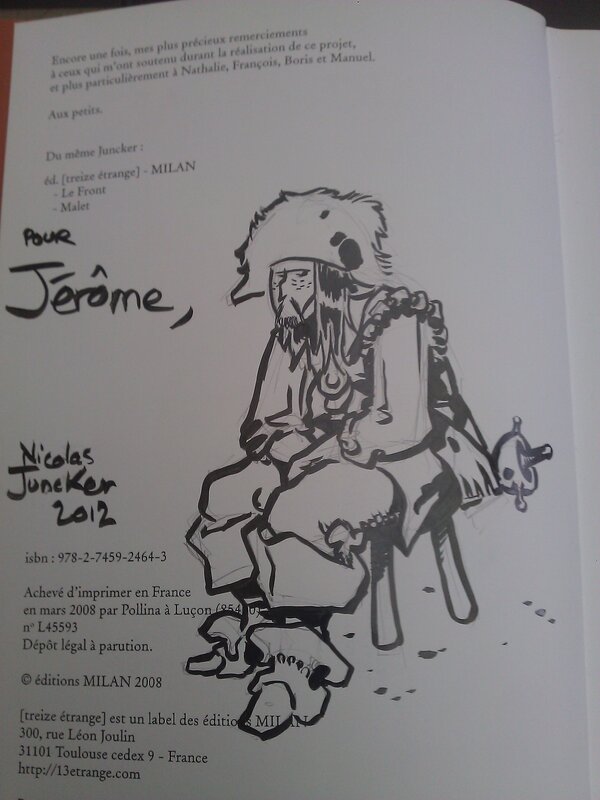 Encore une fois, mes plus précieux remerciements
à ceux qui m'ont soutenu durant la réalisation de ce projet,
et plus particulièrement à Nathalie, François, Boris et Manuel.
Aux petits.
Du même Juncker :
éd. [treize étrange] - MILAN
- Le Front
- Malet
POUR
Jérôme,
Nicolas
Juncker
2012
isbn : 978-2-7459-2464-3
Achevé d'imprimer en France
en mars 2008 par Pollina à Luçon
n° L45593
Dépôt légal à parution.
© éditions MILAN 2008
[treize étrange] est un label des éditions MILAN
300, rue Léon Joulin
31101 Toulouse cedex 9 - France
http://13etrange.com